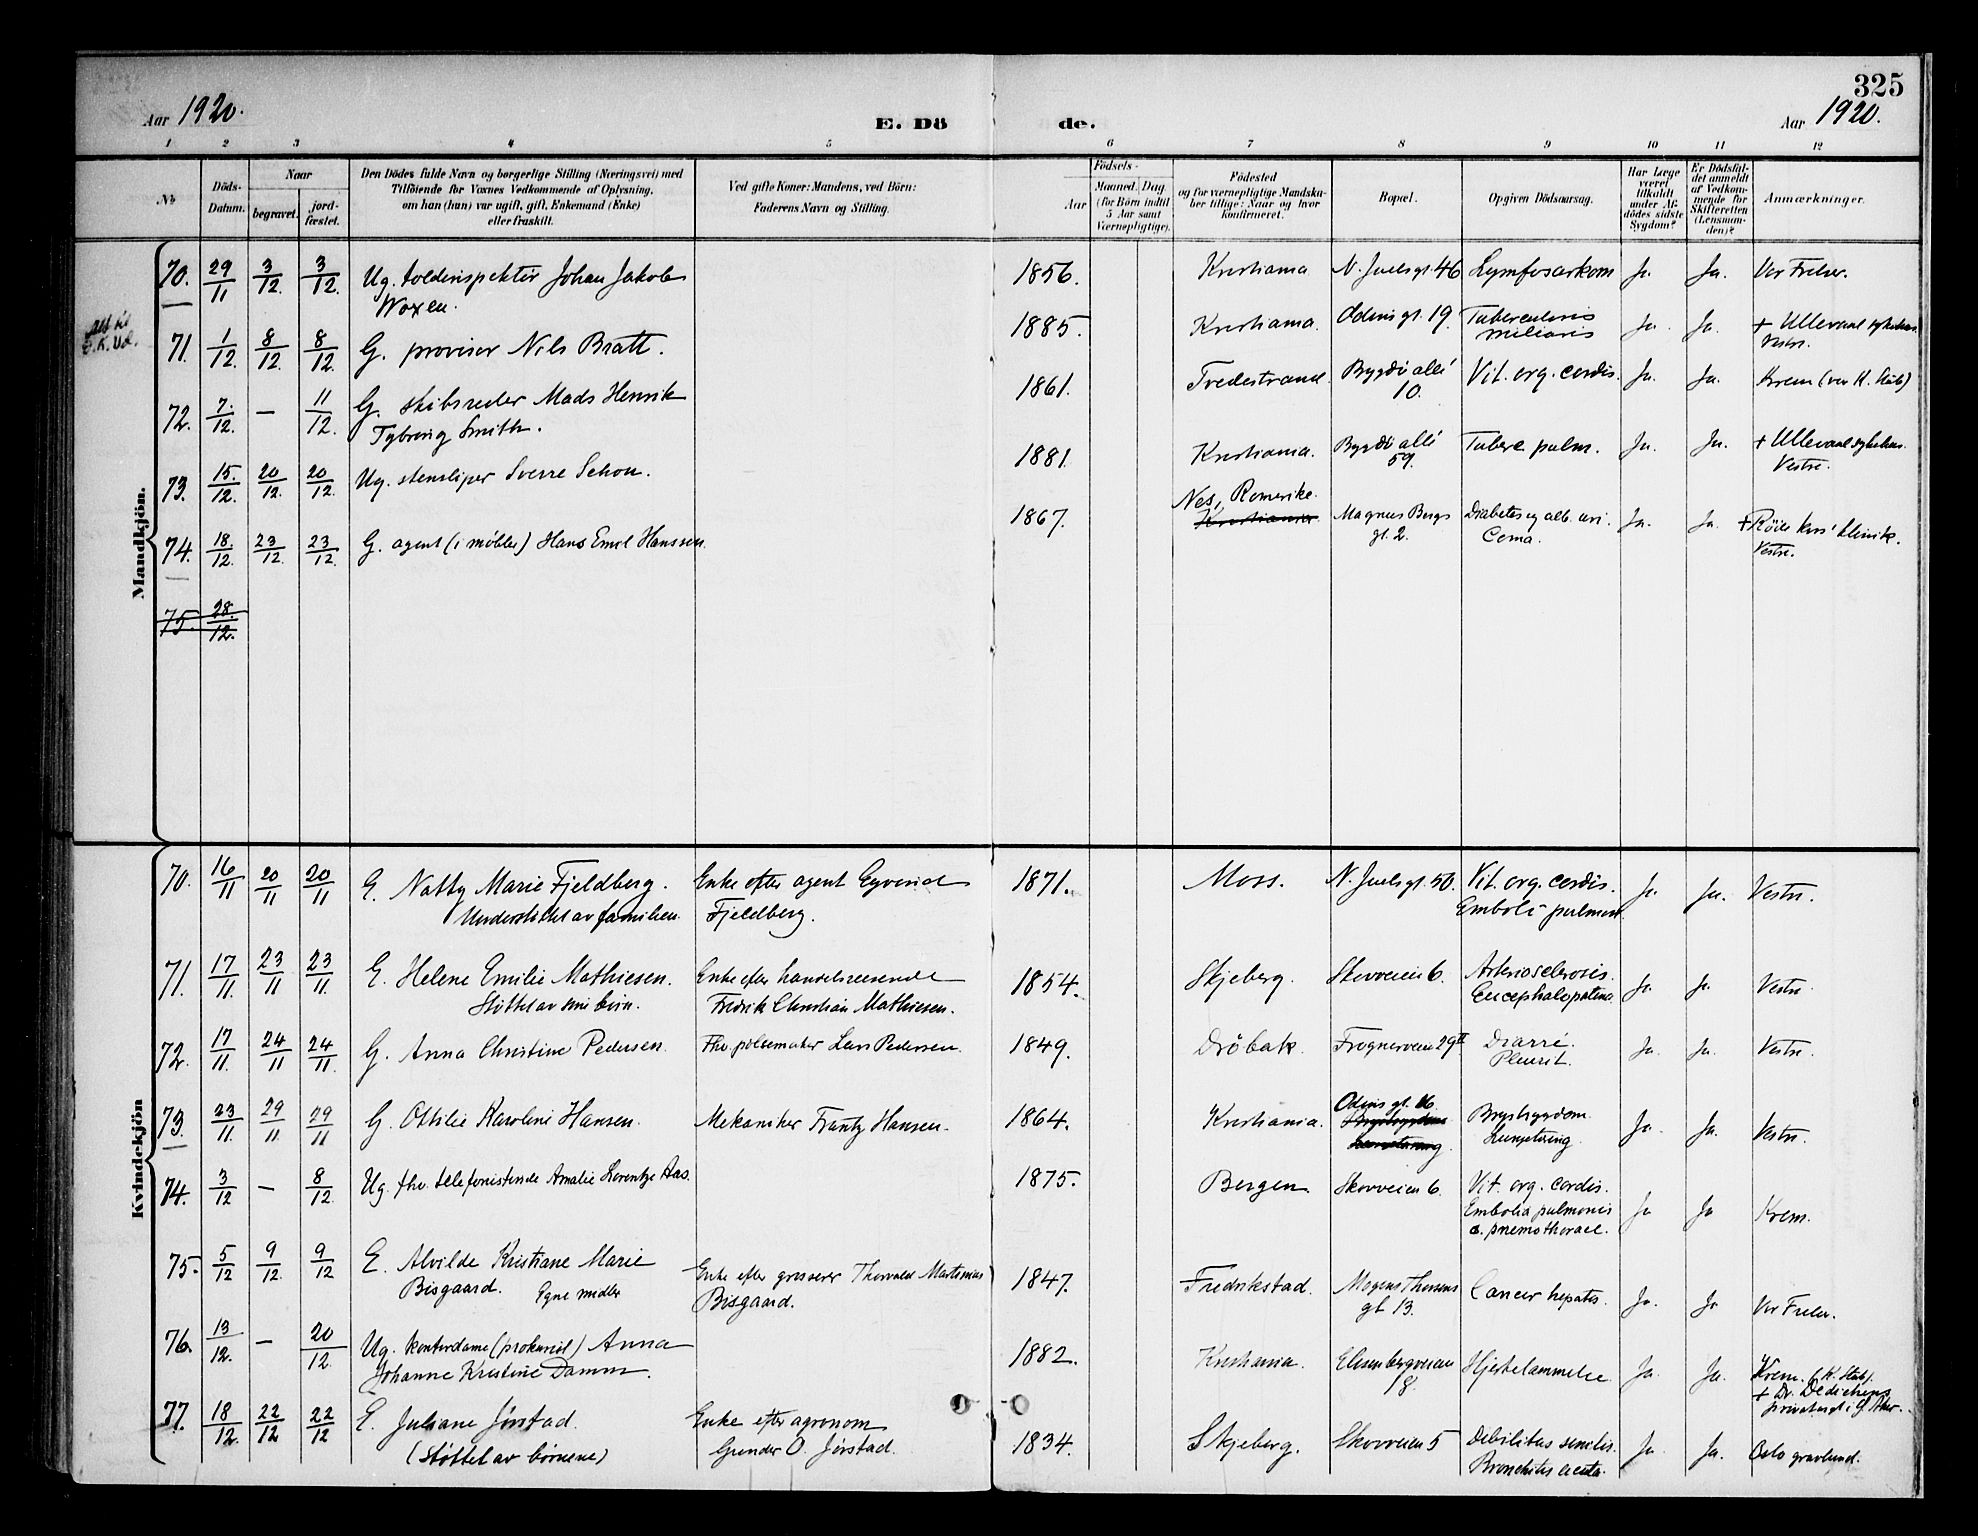 325
Aar 1920.
E. Dö de.
Aar 1920.
1 2 3 4 5 6 7 8 9 10 11 12
No
Döds-Datum.
Naar
begravet.
jordfæstet.
Den Dödes fulde Navn og borgerlige Stilling (Næringsvei) med
Tilföiende for Voxnes Vedkommende af Oplysning,
om han (hun) var ugift, gift, Enkemand (Enke)
eller fraskilt.
Ved gifte Koner: Mandens, ved Börn:
Faderens Navn og Stilling.
Födsels-
Aar
Maaned. Dag
(for Börn indtil
5 Aar samt
Værnepligtige).
Födested
og for værnepligtige Mandskaber tillige: Naar og hvor
konfirmeret.
Bopæl.
Opgiven Dödsaarsag.
Har Læge
været
tilkaldt
under Afdödes sidste
Sygdom?
Er Dödsfaldet anmeldt
af Vedkommende for
Skifteretten
(Lensmanden)?
Anmærkninger.
Mandkjön.
70. 29/11 3/12. 3/12. Ug. toldinspektör Johan Jakob 1856. Kristiania N. Juelsgt. 46 Lymfosarkom Ja. Ja. Vor Frelser.
Woxen.
71. 1/12. 8/12. 8/12. G. provisor Nils Bratt. 1885. Kristiania. Odinsgt. 19. Tuberculosis Ja. Ja. + Ullevaal sykehus.
miliaris
Vestre.
72. 7./12. — 11/12. G. skibsreder Mads Henrik 1861. Tvedestrand Bygdö allé Vit. org. cordis. Ja. Ja. Krem
10.
Tybring Smith.
73. 15./12. 20/12. 20/12. Ug. stensliper Sverre Schou. 1881. Kristiania. Bygdö allé Tuberc. pulm. Ja. Ja. + Ullevaal sykehus.
59.
Vestre.
74. 18./12. 23/12. 23/12. G. agent (i møbler) Hans Emil Hanssen. 1867. Nes, Romerike. Magnus Bergs Diabetes og alb. uri. Ja. Ja. + Röde kors' klinik.
Kristiania
gt. 2.
Coma.
Vestre.
75. 28./12.
Kvindekjön
70. 16/11 20/11 20/11 E. Natty Marie Fjeldberg. Enke efter agent Eyvind 1871. Moss. N. Juelsgt. 50. Vit. org. cordis. Ja. Ja. Vestre.
Understöttet av familien. Fjeldberg. Emboli pulmon.
71. 17/11. 23/11 23/11. E. Helene Emilie Mathiesen. Enke efter handelsreisende 1854. Skjeberg. Skovveien 6. Arteriosclerosis. Ja. Ja. Vestre
Støttet av sine børn. Fredrik Christian Mathiesen. Encephalopatia.
72. 17/11. 24/11 24/11. G. Anna Christine Pedersen. Fhv. pølsemaker Lars Pedersen. 1849. Dröbak. Frognerveien 29 II Diarré. Ja. Ja. Vestre.
Pleurit.
73. 23/11. 29/11. 29/11 G. Ottilie Karoline Hansen. Mekaniker Frantz Hansen. 1864. Kristiania. Odins gt. 16 Brystsygdom Ja. Ja. Vestre.
Brystsygdom
Lungetæring Lungetæring
74. 3/12 — 8/12. Ug. fhv. telefonistinde Amalie Lorentze Aas. 1875. Bergen. Skovveien 6. Vit. org. cordis. Ja Ja Krem.
Embolia pulmonis
c. pnemothorace.
75. 5/12 9/12. 9/12 E. Alvilde Kristiane Marie Enke efter grosserer Thorvald Martinius 1847. Fredrikstad. Mogens Thorsens Cancer hepatis. Ja. Ja Vor Frelser.
Bisgaard. Egne midler Bisgaard. gt 13.
76. 13/12. — 20/12. Ug. kontordame (prokurist) Anna 1882. Kristiania. Elisenbergveien Hjertelammelse Ja. Ja. Krem. (K. Stub).
Johanne Kristine Damm. 18. + Dr. Dedichens
77. 18/12. 22/12 22/12 E. Juliane Jørstad. Enke efter agronom 1834. Skjeberg. Skovveien 5 Debilitas senilis. Ja. Ja. Oslo gravlund.
(Støttet av børnene) Gunder O. Jørstad. Bronchitis acuta.